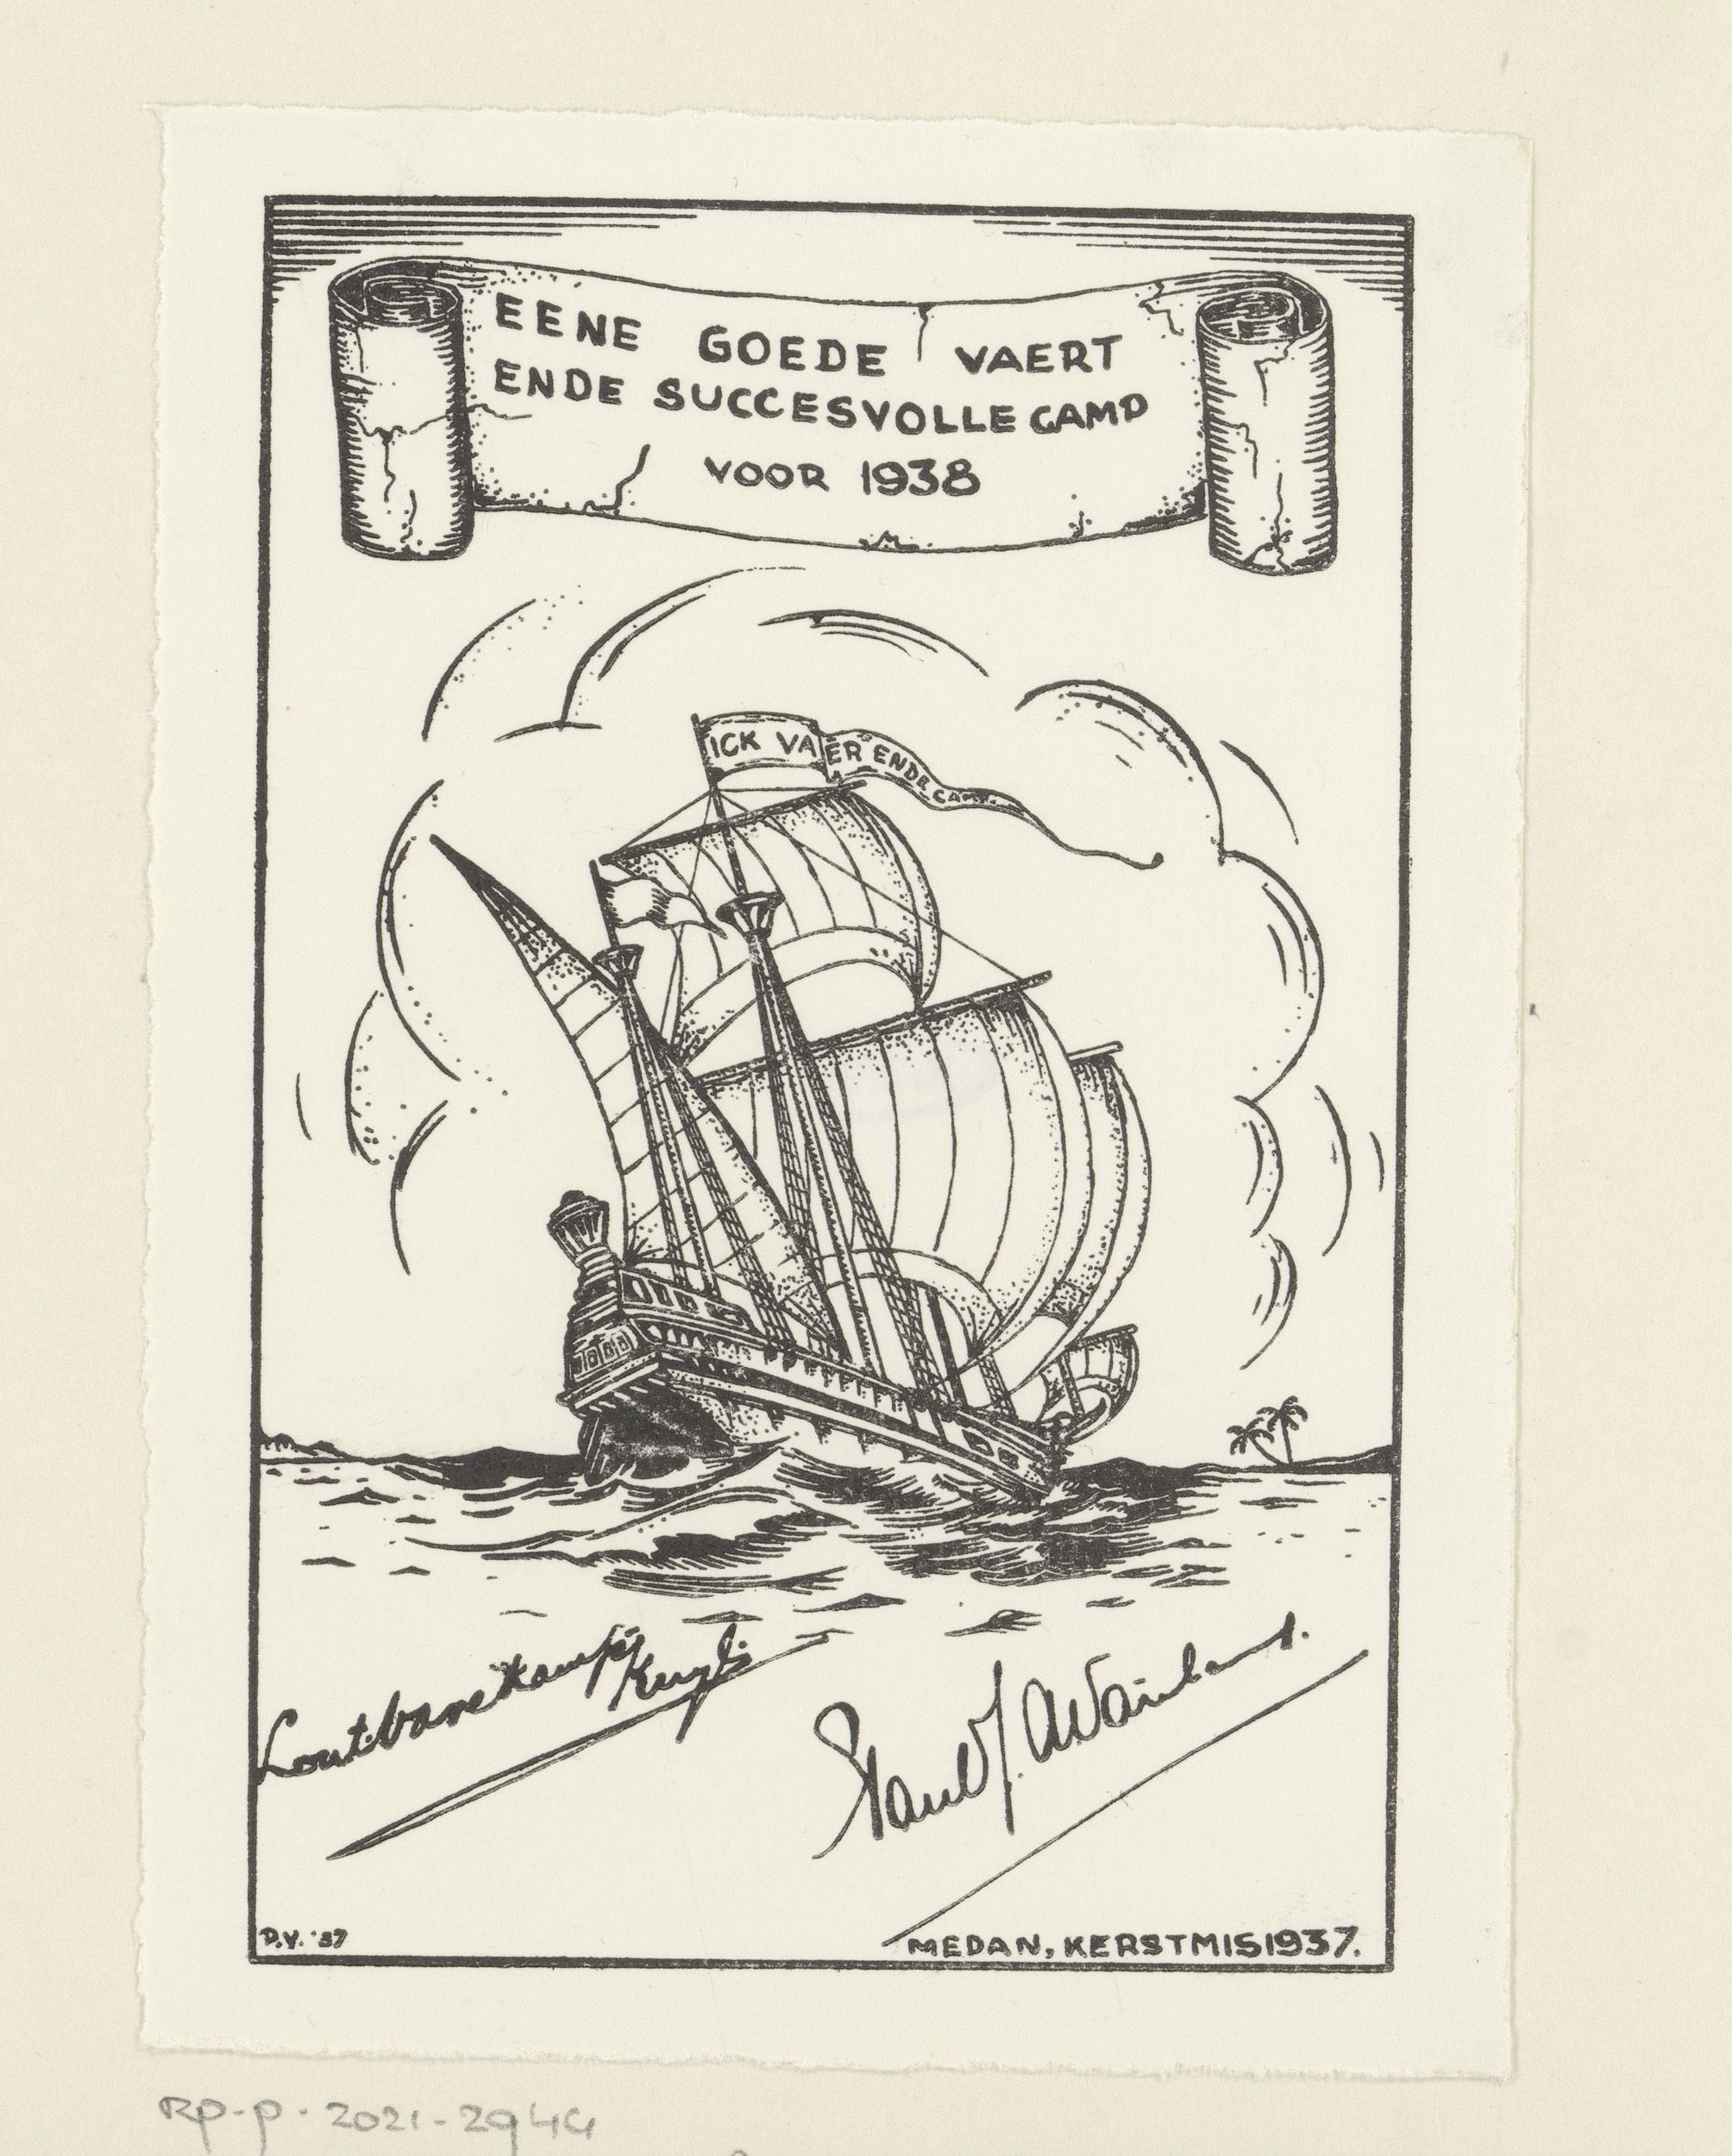 EENE GOEDE VAERT
ENDE SUCCESVOLLE CAMP
VOOR 1938
ICK VAER ENDE CAMP.
P.V. '37
MEDAN, KERSTMIS 1937.
RP-P-2021-2944